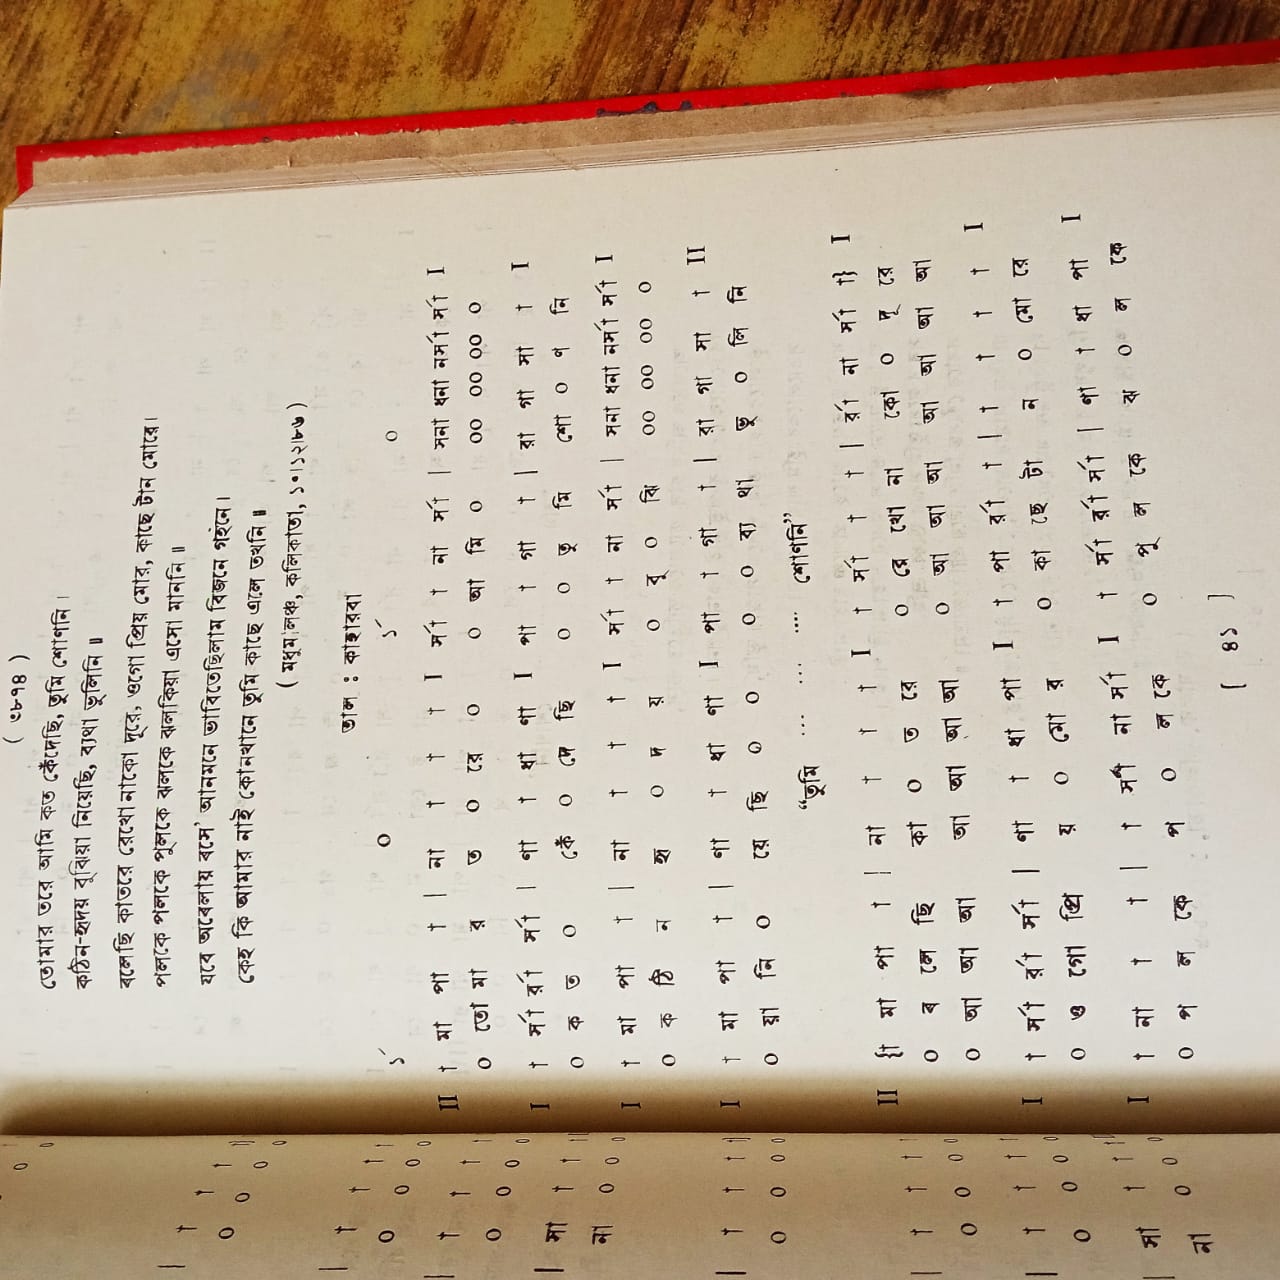 ( ৩৮৭৪ )
তোমার তরে আমি কত কেঁদেছি, তুমি শোণনি।
কঠিন-হৃদয় বুঝিয়া নিয়েছি, ব্যথা ভুলিনি॥
বলেছি কাতরে রেখো নাকো দূরে, ওগো প্রিয় মোর, কাছে টান মোরে।
পলকে পলকে পুলকে ঝলকে ঝলকিয়া এসো মাননি॥
যবে অবেলায় বসে' আনমনে ভাবিতেছিলাম বিজনে গহনে।
কেহ কি আমার নাই কোনখানে তুমি কাছে এলে তখনি॥
( মধুমালঞ্চ, কলিকাতা, ১০।১২।৮৬ )
তাল : কাহারবা
১´ ০ ১´ ০
II † মা পা † | না † † † I র্সা † না র্সা | সনা ধনা নর্সা র্সা I
০ তো মা র ত ০ রে ০ ০ আ মি ০ ০০ ০০ ০০ ০
I † র্সা র্রা র্সা | ণা † ধা ণা I পা † গা † | রা গা সা † I
০ ক ত ০ কেঁ ০ দে ছি ০ ০ তু মি শো ০ ণ নি
I † মা পা † | না † † † I র্সা † না র্সা | সনা ধনা নর্সা র্সা I
০ ক ঠি ন হৃ ০ দ য় ০ বু ০ ঝি ০০ ০০ ০০ ০
I † মা পা † | ণা † ধা ণা I পা † গা † | রা গা সা † II
০ য়া নি ০ য়ে ছি ০ ০ ০ ০ ব্য থা ভু ০ লি নি
“তুমি ... ... .... শোণনি”
II {† মা পা † | না † † † I † র্সা † † | র্রা না র্সা †} I
০ ব লে ছি কা ০ ত রে ০ রে খো না কো ০ দূ রে
০ আ আ আ আ আ আ আ ০ আ আ আ আ আ আ আ
I † র্সা র্রা র্সা | ণা † ধা পা I † পা র্রা † | † † † † I
০ ও গো প্রি য় ০ মো র ০ কা ছে টা ন ০ মো রে
I † না † † | † র্সা না র্সা I † র্সা র্রা র্সা | ণা † ধা পা I
০ প ল কে প ০ ল কে ০ পু ল কে ঝ ০ ল কে
[ ৪১ ]